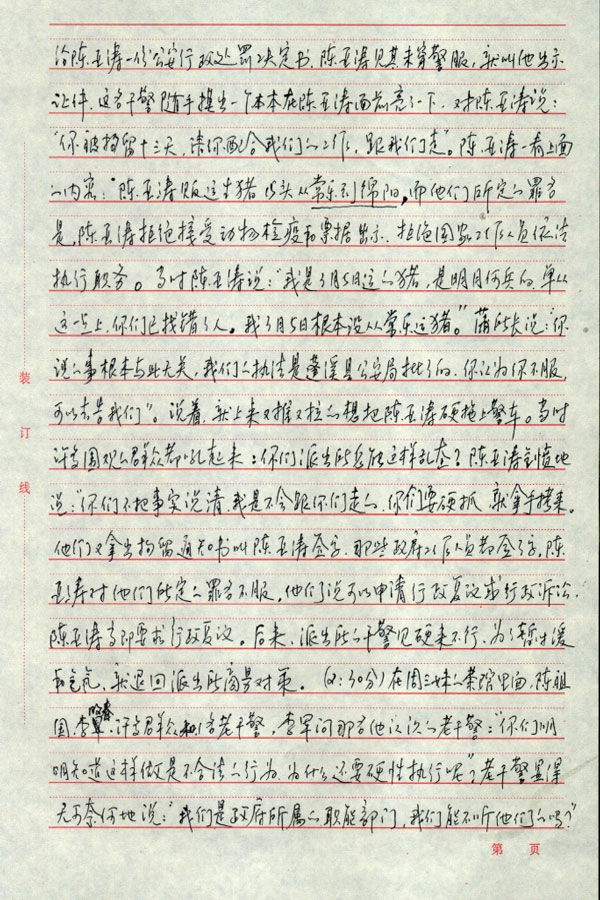 给陈亚涛一份公安行政处罚决定书,陈亚涛见其未穿警服,就叫他出示
证件,这名干警随手摸出一个本本在陈亚涛面前亮了一下,对陈亚涛说:
“你被拘留十三天,请你配合我们的工作,跟我们走”。陈亚涛一看上面
的内容:“陈亚涛贩运生猪 头从常乐到绵阳,而他们所定的罪名
是,陈亚涛拒绝接受动物检疫 票据出示,拒绝国家工作人员依法
执行职务。当时陈亚涛说:“我是3月5日运的猪,是明月何兵的,单从
这一点上,你们已找错了人。我3月5日根本没从常乐运猪。”蒲所长说:“你
说的事根本与此无关,我们的执法是蓬溪县公安局批了的,你认为你不服,
可以去告我们”。说着,就上来又推又拉的想把陈亚涛硬拖上警车。当时
许多围观的群众都吼起来:你们派出所怎能这样乱查?陈亚涛 愤地
说:“你们不把事实说清,我是不会跟你们走的,你们要硬抓,就拿手拷来。
他们又拿出拘留通知书叫陈亚涛签字,那些政府工作人员都签了字,陈
亚涛对他们所定的罪名不服,他们说可以申请行政复议或行政诉讼,
陈亚涛当即要求行政复议。后来,派出所的干警见硬来不行,为了暂时缓
和空气,就退回派出所商量对策。(2:30分)在周三妹的茶馆里面,陈祖
国、李军 咏春、许多群众和1名老干警,李军问那名他认识的老干警:“你们明
明知道这样做是不合法的行为,为什么还要硬性执行呢?”老干警显得
无可奈何地说:“我们是政府所属的职能部门,我们能不听他们的吗?”
装
订
线
第 页